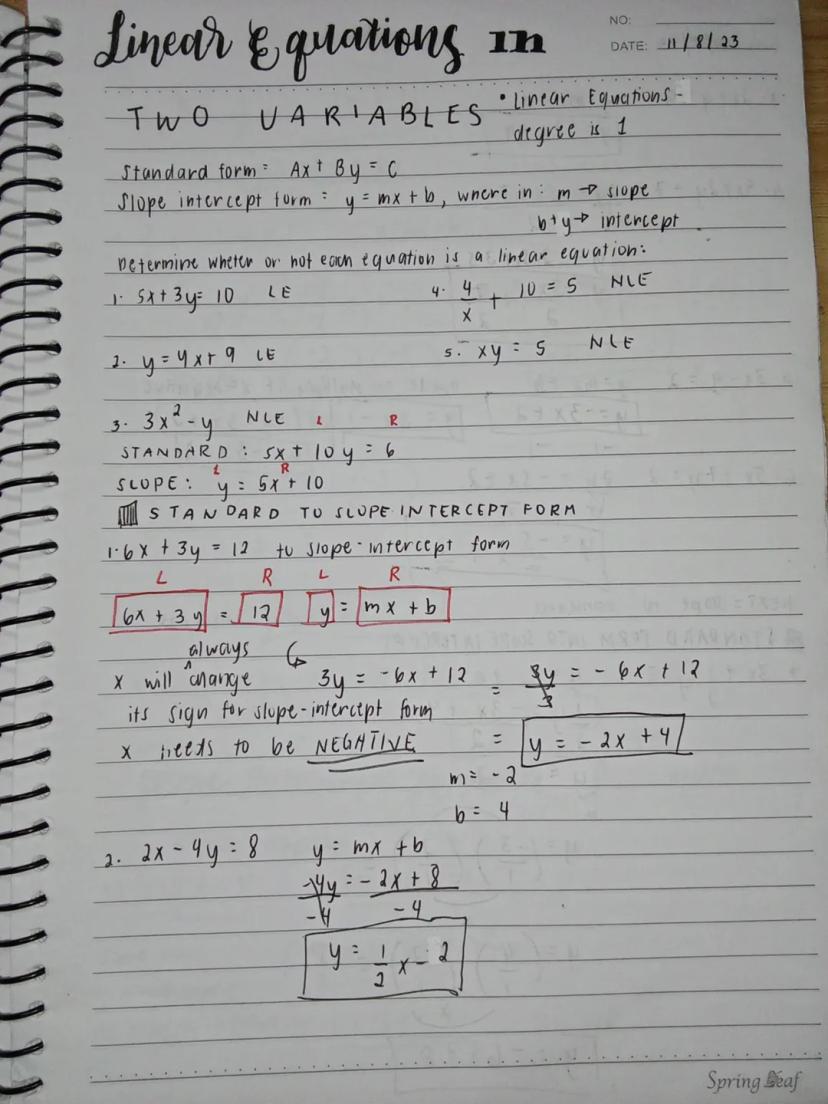 Linear Equations in
NO:
DATE: 11/8/23
TWO VARIABLES
• Linear Equations -
degree is 1
Standard form = Ax + By = C
Slope intercept form = y = mx + b, where in: m → slope
b + y → intercept
Determine wheter or not each equation is a linear equation:
1. 5x + 3y = 10 LE
4. 4/x + 10 = 5 NLE
2. y = 4x + 9 LE
5. xy = 5 NLE
3. 3x² - y NLE
L R
STANDARD: 5x + 10y = 6
L R
SLOPE: y = 5x + 10
STANDARD TO SLOPE INTERCEPT FORM
1. 6x + 3y = 12 to slope-intercept form
L R L R
6x + 3y = 12 y = mx + b
always
x will change 3y = -6x + 12 = 3y/3 = -6x + 12
its sign for slope-intercept form
x needs to be NEGATIVE = y = -2x + 4
m = -2
b = 4
2. 2x - 4y = 8 y = mx + b
-4y = -2x + 8
-4 -4
y = 1/2 x - 2
Spring Leaf